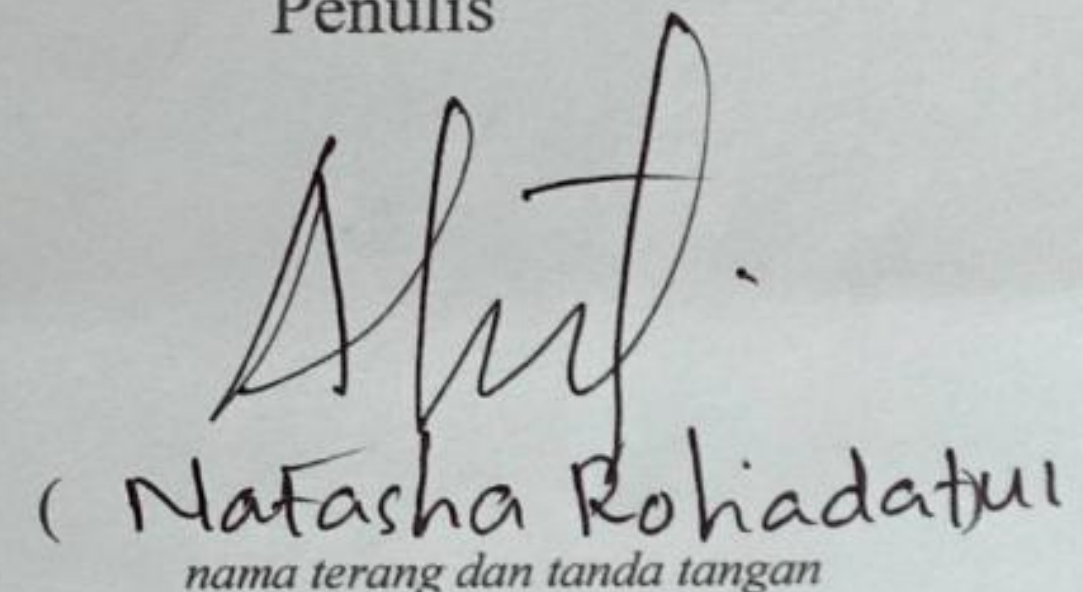 Penulis
( Natasha Rohadatul
nama terang dan tanda tangan